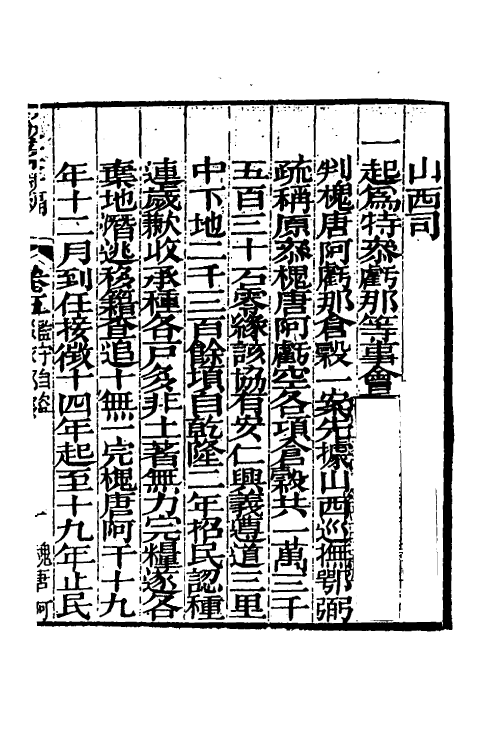 山西司
一起爲特叅虧那等事會
判槐唐阿虧那倉穀一案先據山西巡撫鄂弼
疏稱原叅槐唐阿虧空各項倉穀共一萬三千
五百三十石零緣該協有安仁興義遵道三里
中下地二千三百餘頃自乾隆二年招民認種
連歲歉收承種各戸多非土著無力完糧遂各
棄地潛逃移籍查追十無一完槐唐阿于十九
年十二月到任接徵十四年起至十九年止民
卷五 監守自盜 一 槐唐阿